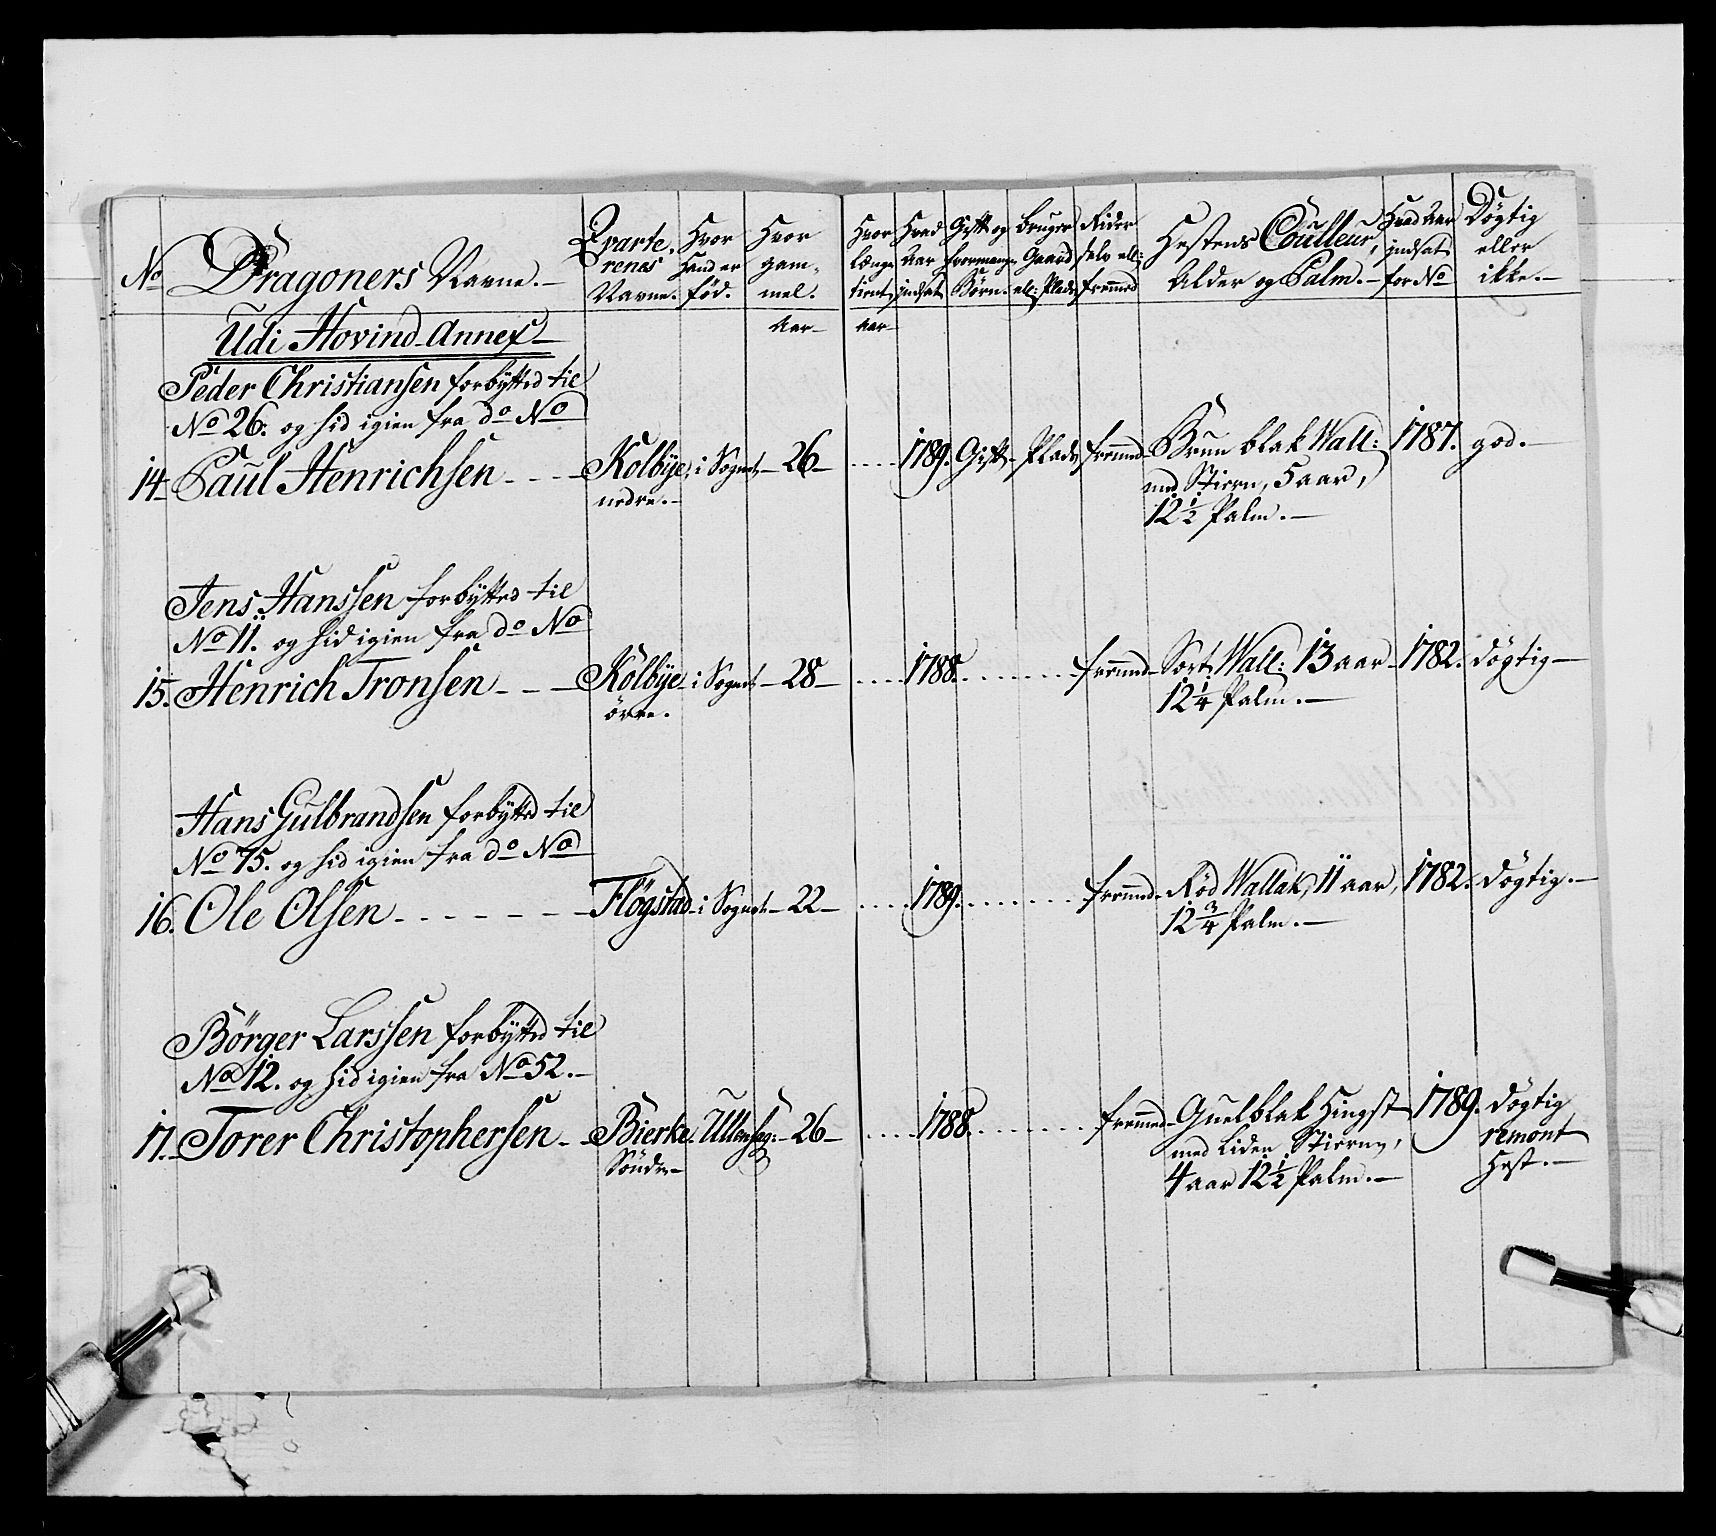 No
Dragoners Navne.
Qvarte,
renes
Navne.
Hvor
Hand er
fød.
Hvor
gam,
mel.
Aar
Hvor
længe
tient
aar
Hvad
Aar
indsat
Gift og
hvormange
Børn.
bruger
Gaard
ell: Plads
Rider
selv ell:
fremmed
Hestens Coulleur,
Alder og Palm.
Hvad Aar
indsat
for No
Døgtig
eller
ikke.
Udi Hovind Annex
Peder Christiansen forbytted til
No 26. og hid igien fra do No
14 Paul Henrichsen - - - Kolbye, i Sognet 26 .... 1789. Gift Plads fremmed Bruun blak Wall: 1787. god.
nedre.
med Stiern, 5 aar,
12 1/2 Palm.
Jens Hanssen forbytted til
No 11. og hid igien fra do No
15. Henrich Tronsen - - - Kolbye i Sognet 28 .... 1788. ........ fremmed Sort Wall: 13 aar 1782. døgtig
øvre.
12 1/4 Palm.
Hans Gulbrandsen forbytted til
No 75. og hid igien fra do No
16. Ole Olsen - - - - - - Fløgstad i Sognet 22 .... 1789. ........ fremmed Rød Wallak, 11 aar, 1782. døgtig.
12 3/4 Palm.
Børger Larssen forbytted til
No 12. og hid igien fra No 52.
17. Torer Christophersen - - Bierke Ullensag: 26 .... 1788. ........ fremmed Guelblak Hingst 1789. døgtig
Søndre
med liden Stierne,
remont
4 aar 12 1/2 Palm.
Hest.